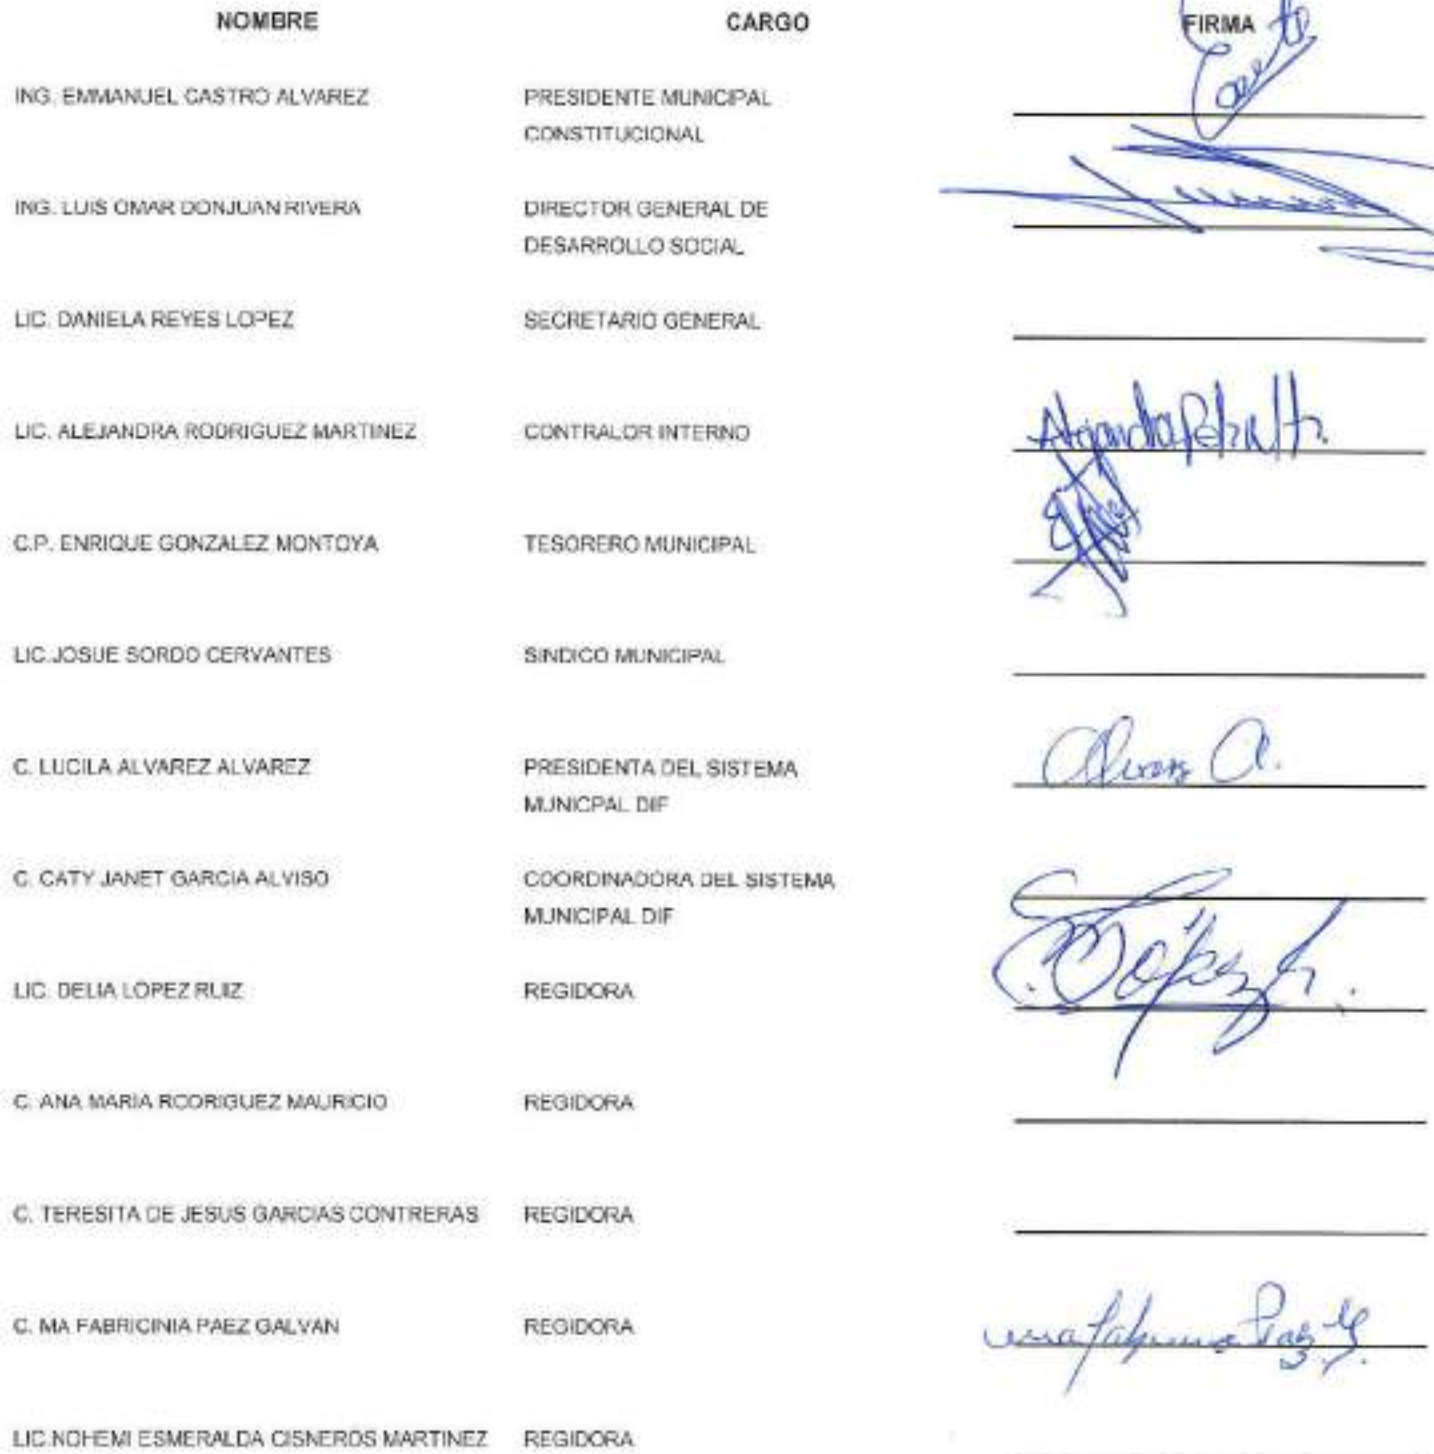 NOMBRE CARGO FIRMA
ING. EMMANUEL CASTRO ALVAREZ PRESIDENTE MUNICIPAL
CONSTITUCIONAL
ING. LUIS OMAR DONJUAN RIVERA DIRECTOR GENERAL DE
DESARROLLO SOCIAL
LIC. DANIELA REYES LOPEZ SECRETARIO GENERAL
LIC. ALEJANDRA RODRIGUEZ MARTINEZ CONTRALOR INTERNO
C.P. ENRIQUE GONZALEZ MONTOYA TESORERO MUNICIPAL
LIC.JOSUE SORDO CERVANTES SINDICO MUNICIPAL
C. LUCILA ALVAREZ ALVAREZ PRESIDENTA DEL SISTEMA
MUNICPAL DIF
C. CATY JANET GARCIA ALVISO COORDINADORA DEL SISTEMA
MUNICIPAL DIF
LIC. DELIA LOPEZ RUIZ REGIDORA
C. ANA MARIA RODRIGUEZ MAURICIO REGIDORA
C. TERESITA DE JESUS GARCIAS CONTRERAS REGIDORA
C. MA FABRICINIA PAEZ GALVAN REGIDORA
LIC.NOHEMI ESMERALDA CISNEROS MARTINEZ REGIDORA